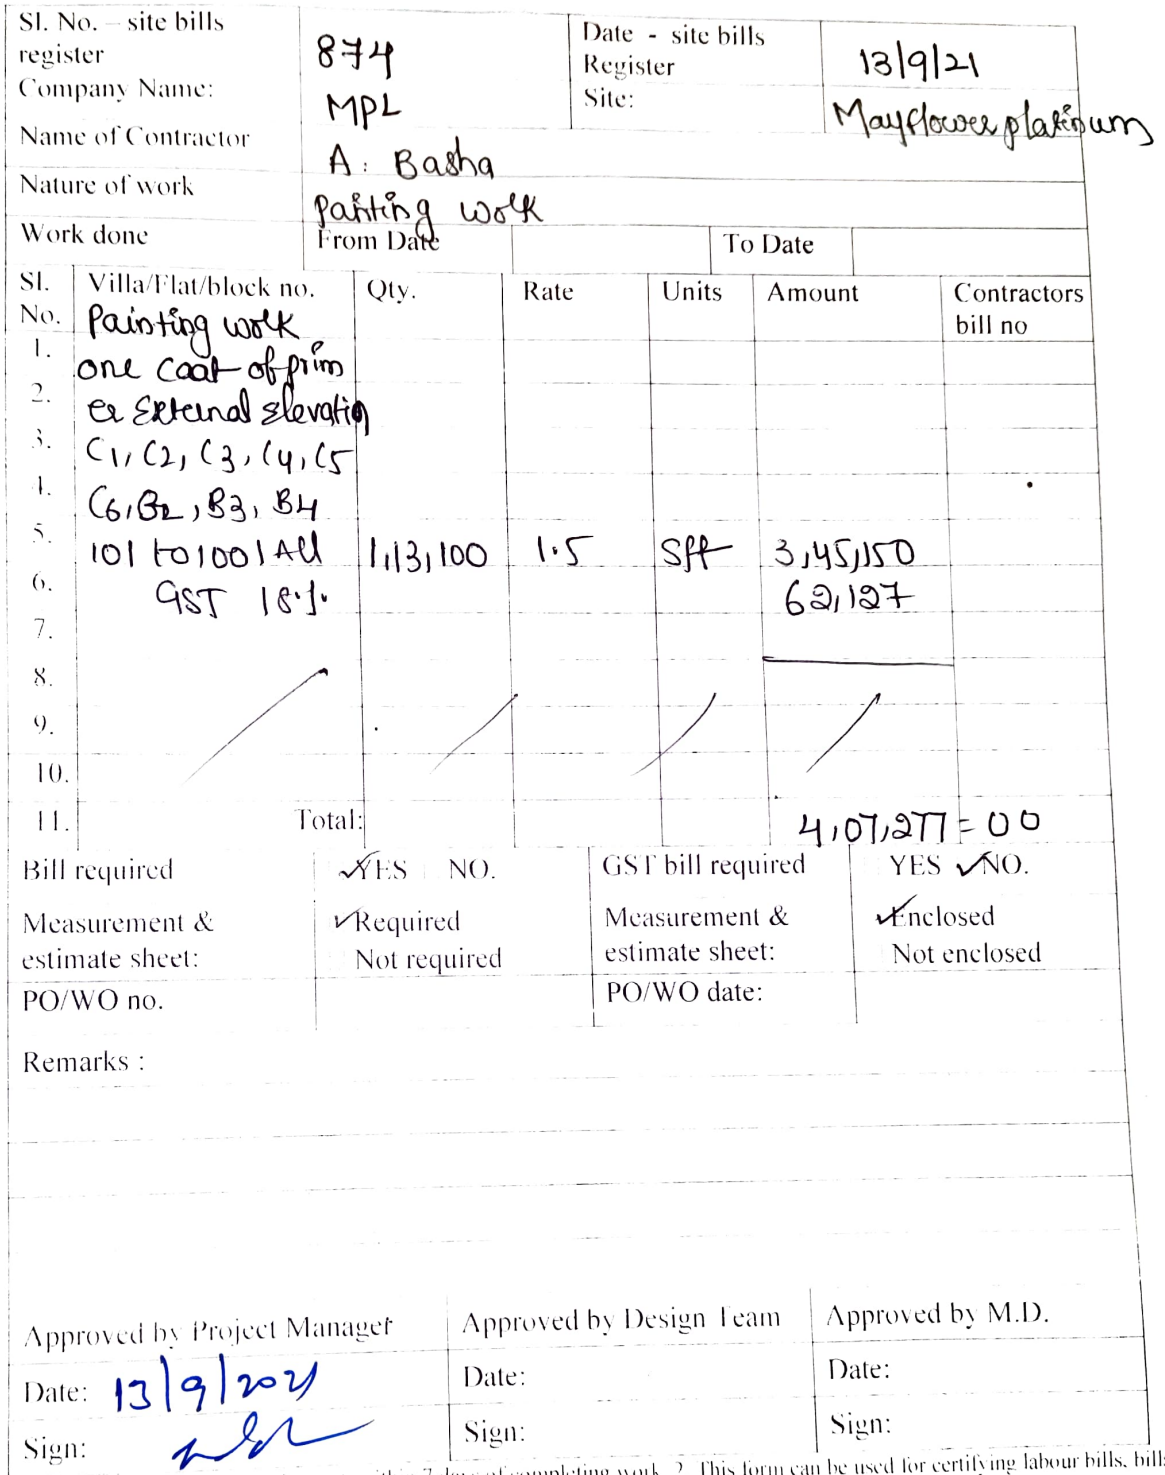 Sl. No. – site bills register 874 Date - site bills Register 13/9/21
Company Name: MPL Site: Mayflower platinum
Name of Contractor A. Basha
Nature of work Painting work
Work done From Date To Date
Sl. No. Villa/Flat/block no. Qty. Rate Units Amount Contractors bill no
Painting work
1. one coat of prim
2. er External elevation
3. C1, C2, C3, C4, C5
4. C6, B2, B3, B4
5. 101 to 1001 All 1,13,100 1.5 Sft 3,45,150
6. GST 18% 62,127
7.
8.
9.
10.
11. Total: 4,07,277=00
Bill required YES NO. GST bill required YES NO.
Measurement & Required Measurement & Enclosed
estimate sheet: Not required estimate sheet: Not enclosed
PO/WO no. PO/WO date:
Remarks :
Approved by Project Manager Approved by Design Team Approved by M.D.
Date: 13/9/2021 Date: Date:
Sign: Sign: Sign:
7 days of completing work. 2. This form can be used for certifying labour bills, bill